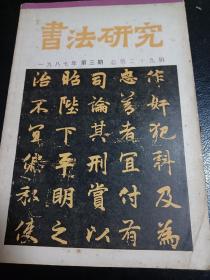 書法研究
一九八七年第三期 总第二十九辑
作奸犯科及為
忠善者宜付有
司論其刑賞以
昭陛下平明之
治不宜偏私使